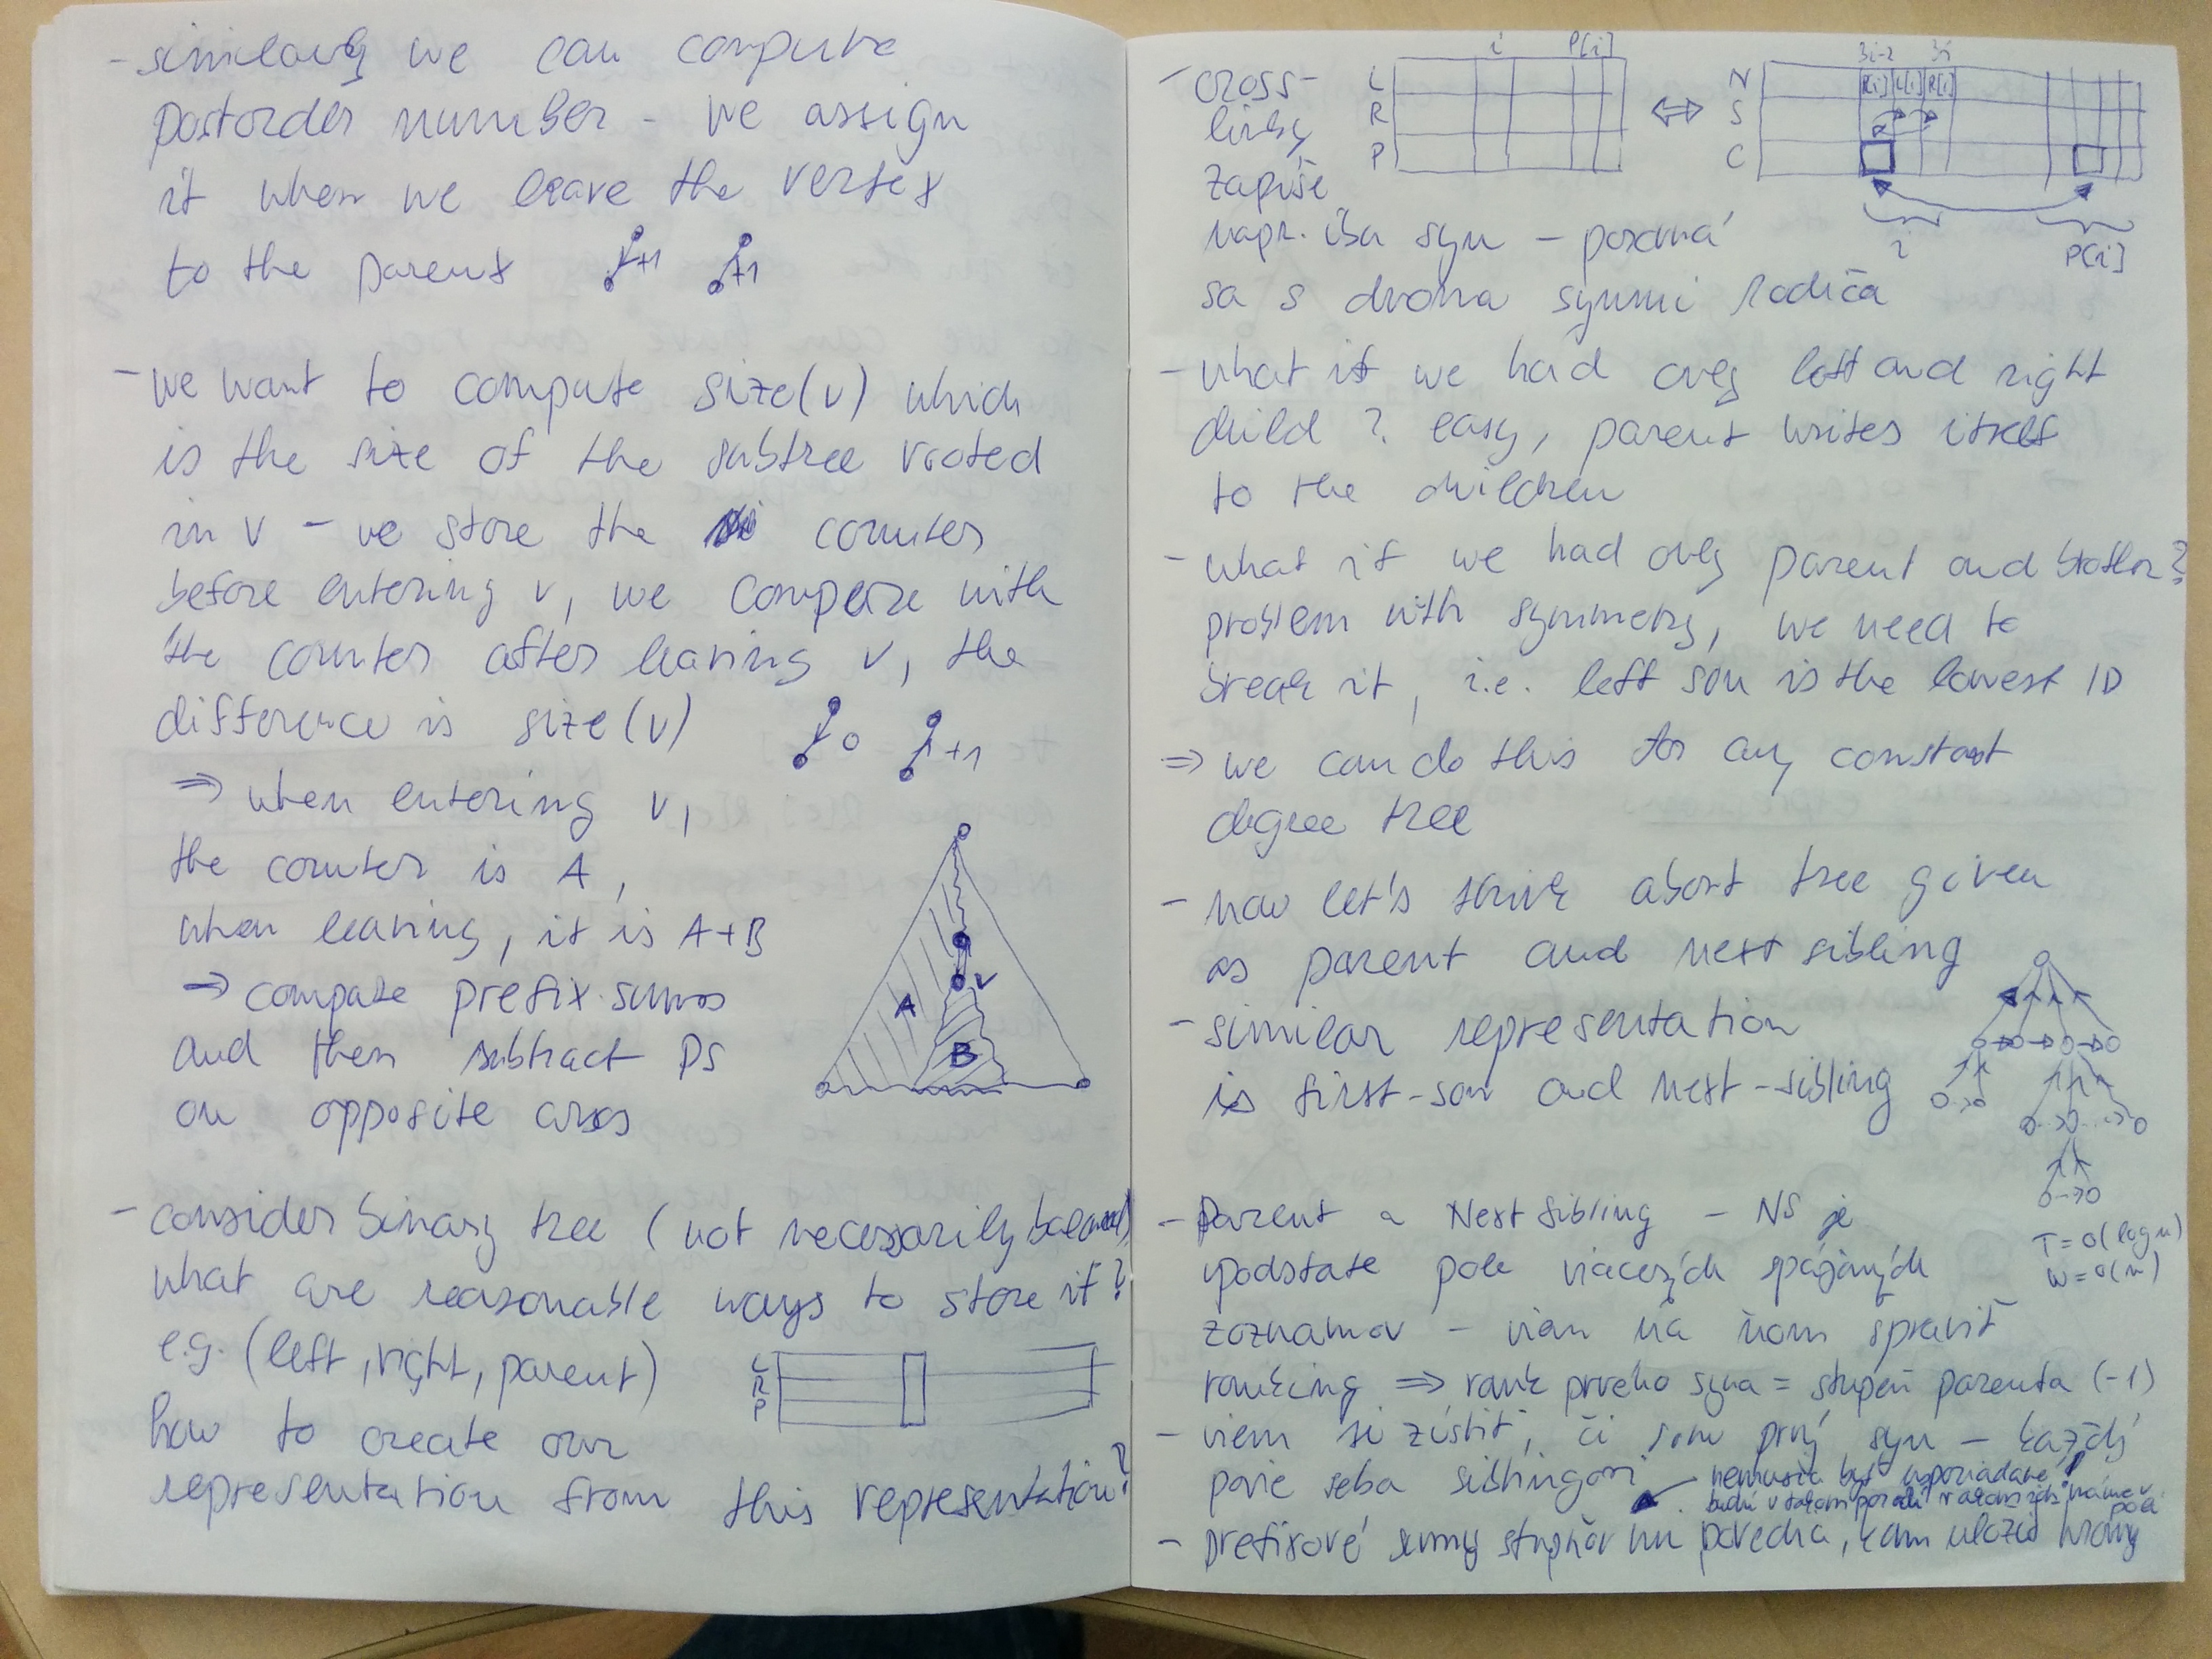 - similarly we can compute
postorder number - we assign
it when we leave the vertex
to the parent +1 +1
- we want to compute size(v) which
is the size of the subtree rooted
in v - we store the counter
before entering v, we compare with
the counter after leaving v, the
difference is size(v) 0 +1
⇒ when entering v,
the counter is A,
when leaving, it is A+B
⇒ compute prefix sums
and then subtract PS
on opposite arcs
A
B
v
- consider binary tree (not necessarily balanced)
what are reasonable ways to store it?
e.g. (left, right, parent)
L
R
P
how to create our
representation from this representation?
- cross-
linky
zapíše
napr. iba syn - porovná
sa s dvoma synmi rodiča
i P[i]
L
R
P
⇔
3i-2 3i
N
S
C
L[i] R[i]
i
P[i]
- what if we had only left and right
child? easy, parent writes itself
to the children
- what if we had only parent and brother?
problem with symmetry, we need to
break it, i.e. left son is the lowest ID
⇒ we can do this for any constant
degree tree
- now let's think about tree given
as parent and next sibling
- similar representation
is first-son and next-sibling
- Parent a Next sibling - NS je
vpodstate pole viacerých spájaných
zoznamov - viem na ňom spraviť
T = O(log n)
W = O(n)
ranking ⇒ rank prvého syna = stupeň parenta (-1)
- viem si zistiť, či som prvý syn - každý
povie seba siblingovi
nemusia byť usporiadané!
budú v takom poradí v akom ich máme v
poli
- prefixové sumy stupňov mi povedia, kam uložiť hrany